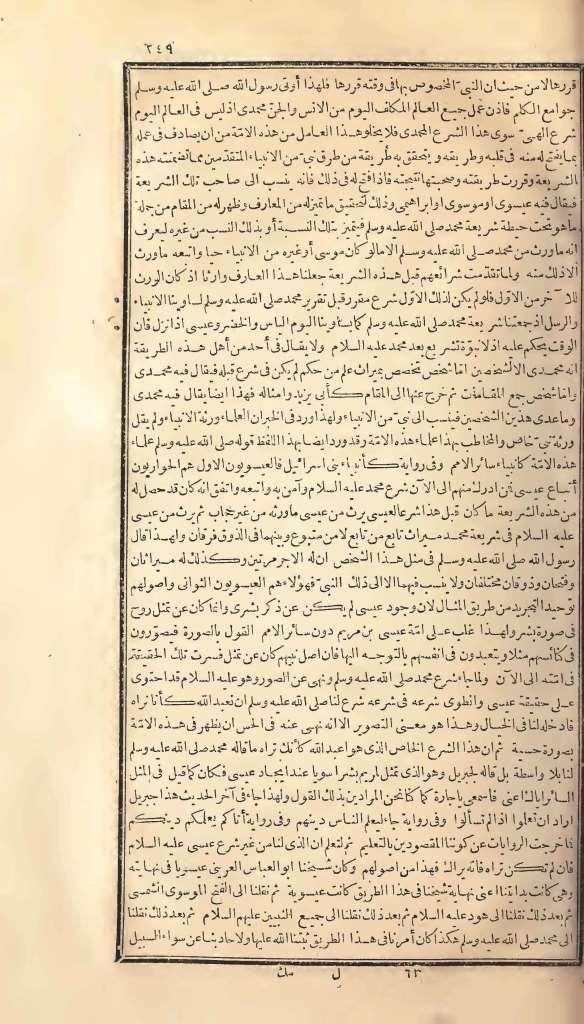 ٢٤٩
قررها لا من حيث ان النبي المخصوص بها في وقته قررها فلهذا أوتي رسول الله صلى الله عليه وسلم
جوامع الكلم فاذن عمل جميع العالم المكلف اليوم من الانس والجن محمدى اذ ليس في العالم اليوم
شرع الهى سوى هذا الشرع المحمدى فلا يخلو هذا العامل من هذه الامة من ان يصادف في عمله
بما يفتح له منه فى قلبه وطريقه ويتحقق به طريقة من طرق نبي من الانبياء المتقدمين مما تضمنته هذه
الشريعة وقررت طريقته وصحبتها نتيجته فاذا فتح له فى ذلك فانه ينسب الى صاحب تلك الشريعة
فيقال فيه عيسوى او موسوى او ابراهيمى وذلك لتحقيق ما تميز له من المعارف وظهر له من المقام من جملة
ما هو تحت حيطة شريعة محمد صلى الله عليه وسلم فيتميز بتلك النسبة أو بذلك النسب من غيره ليعرف
انه ما ورث من محمد صلى الله عليه وسلم الا ما لو كان موسى أو غيره من الانبياء حيا واتبعه ما ورث
الا ذلك منه ولما تقدمت شرائعهم قبل هذه الشريعة جعلنا هذا العارف وارثا اذ كان الورث
للآخر من الاول فلو لم يكن لذلك الاول شرع مقرر قبل تقرير محمد صلى الله عليه وسلم لساوينا الانبياء
والرسل اذ جمعتنا شريعة محمد صلى الله عليه وسلم كما يساوينا اليوم الياس والخضر وعيسى اذا نزل فان
الوقت يحكم عليه اذ لا نبوة تشريع بعد محمد عليه السلام ولا يقال فى أحد من أهل هذه الطريقة
انه محمدى الا لشخصين اما شخص تخصص بميراث علم من حكم لم يكن فى شرع قبله فيقال فيه محمدى
واما شخص جمع المقامات ثم خرج عنها الى لا مقام كأبى يزيد وامثاله فهذا ايضا يقال فيه محمدى
وما عدى هذين الشخصين فينسب الى نبي من الانبياء ولهذا ورد فى الخبر ان العلماء ورثة الانبياء ولم يقل
ورثة نبي خاص والمخاطب بهذا علماء هذه الامة وقد ورد ايضا بهذا اللفظ قوله صلى الله عليه وسلم علماء
هذه الامة كانبياء سائر الامم وفى رواية كأنبياء بنى اسرائيل فالعيسويون الاول هم الحواريون
أتباع عيسى فمن ادرك منهم الى الآن شرع محمد عليه السلام وآمن به واتبعه واتفق انه كان قد حصل له
من هذه الشريعة ما كان قبل هذا شرعا لعيسى يرث من عيسى ما ورثه من غير حجاب ثم يرث من عيسى
عليه السلام فى شريعة محمد ميراث تابع من تابع لا من متبوع وبينهما فى الذوق فرقان ولهذا قال
رسول الله صلى الله عليه وسلم فى مثل هذا الشخص ان له الاجر مرتين وكذلك له ميراثان
وفتحان وذوقان مختلفان ولا ينسب فيهما الا الى ذلك النبي فهؤلاء هم العيسويون الثوانى واصولهم
توحيد التجريد من طريق المثال لان وجود عيسى لم يكن عن ذكر بشرى وانما كان عن تمثل روح
فى صورة بشر ولهذا غلب على امة عيسى بن مريم دون سائر الامم القول بالصورة فيصورون
فى كنائسهم مثلا ويتعبدون فى انفسهم بالتوجه اليها فان اصل نبيهم كان عن تمثل فسرت تلك الحقيقة
فى امته الى الآن ولما جاء شرع محمد صلى الله عليه وسلم ونهى عن الصور وهو عليه السلام قد احتوى
على حقيقة عيسى وانطوى شرعه فى شرعه شرع لنا صلى الله عليه وسلم ان نعبد الله كأنا نراه
فادخله لنا فى الخيال وهذا هو معنى التصوير الا انه نهى عنه فى الحس ان يظهر فى هذه الامة
بصورة حسية ثم ان هذا الشرع الخاص الذى هو اعبد الله كأنك تراه ما قاله محمد صلى الله عليه وسلم
لنا بلا واسطة بل قاله لجبريل وهو الذى تمثل لمريم بشرا سويا عند ايجاد عيسى فكان كما قيل فى المثل
السائر اياك اعنى فاسمعى يا جارة كما كنا نحن المرادين بذلك القول ولهذا جاء فى آخر الحديث هذا جبريل
اراد ان تعلموا اذا لم تسألوا وفى رواية جاء ليعلم الناس دينهم وفى رواية أتاكم يعلمكم دينكم
فما خرجت الروايات عن كوننا المقصودين بالتعليم ثم لتعلم ان الذى لنا من غير شرع عيسى عليه السلام
فان لم تكن تراه فانه يراك فهذا من اصولهم وكان شيخنا ابو العباس العرينى عيسويا فى نهايته
وهى كانت بدايتنا اعنى نهاية شيخنا فى هذا الطريق كانت عيسوية ثم نقلنا الى الفتح الموسوى الشمسى
ثم بعد ذلك نقلنا الى هود عليه السلام ثم بعد ذلك نقلنا الى جميع النبيين عليهم السلام ثم بعد ذلك نقلنا
الى محمد صلى الله عليه وسلم هكذا كان أمرنا فى هذا الطريق ثبتنا الله عليها ولا حاد بنا عن سواء السبيل
٦٣ ل